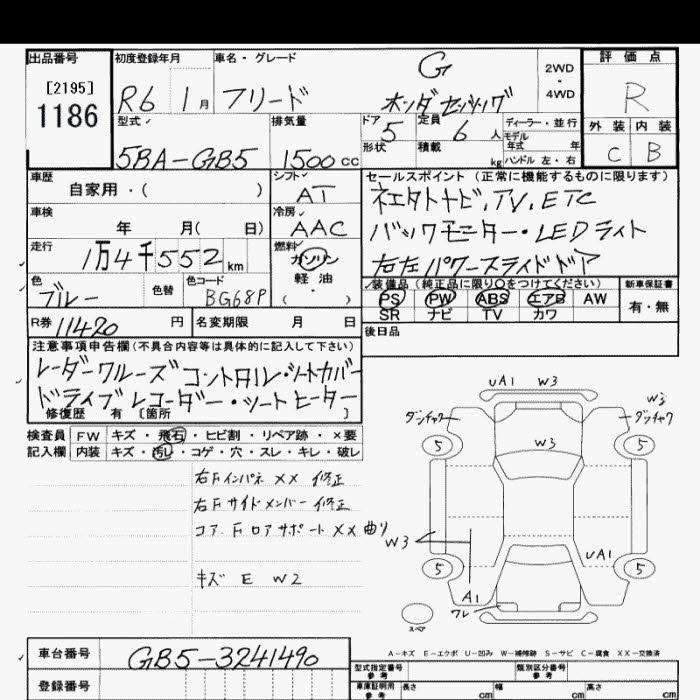 出品番号
[2195]
1186
初度登録年月
R6 1月
車名・グレード
G
フリード ホンダセンシング
2WD
・
4WD
評価点
R
型式
5BA-GB5
排気量
1500cc
ドア 5
形状
定員 6人
積載 kg
ディーラー・並行
モデル年式 年
ハンドル 左・右
外装 内装
C B
車歴
自家用・( )
シフト
AT
セールスポイント(正常に機能するものに限ります)
車検
年 月( 日)
冷房
AAC
バックモニター・LEDライト
右左パワースライドドア
走行
1万4千552km
燃料
ガソリン
軽油
( ・ )
色
ブルー
色替
色コード
BG68P
装備品(純正品に限り〇をつけてください)
PS PW ABS エアB AW
SR ナビ TV カワ
新車保証書
有・無
R券 11420円
名変期限 月 日
後日品
注意事項申告欄(不具合内容等は具体的に記入して下さい)
レーダークルーズコントロル・シートカバー
ドライブレコーダー・シートヒーター
修復歴 有〔箇所 〕
検査員
記入欄
FW キズ・飛石・ヒビ割・リペア跡・×要
内装 キズ・汚レ・コゲ・穴・スレ・キレ・破レ
右Fインパネ XX 修正
右Fサイドメンバー 修正
コア.Fロアサポート XX 曲り
キズ E W2
UA1 W3
W3
W3
5
5
W3
UA1
5
5
A1
ワレ
スペア
A-キズ E-エクボ U-凹み W-補修跡 S-サビ C-腐食 XX-交換済
車台番号
GB5-3241490
登録番号
型式指定番号
参考
類別区分番号
参考
車庫証明用
参考
長さ cm
幅 cm
高さ cm